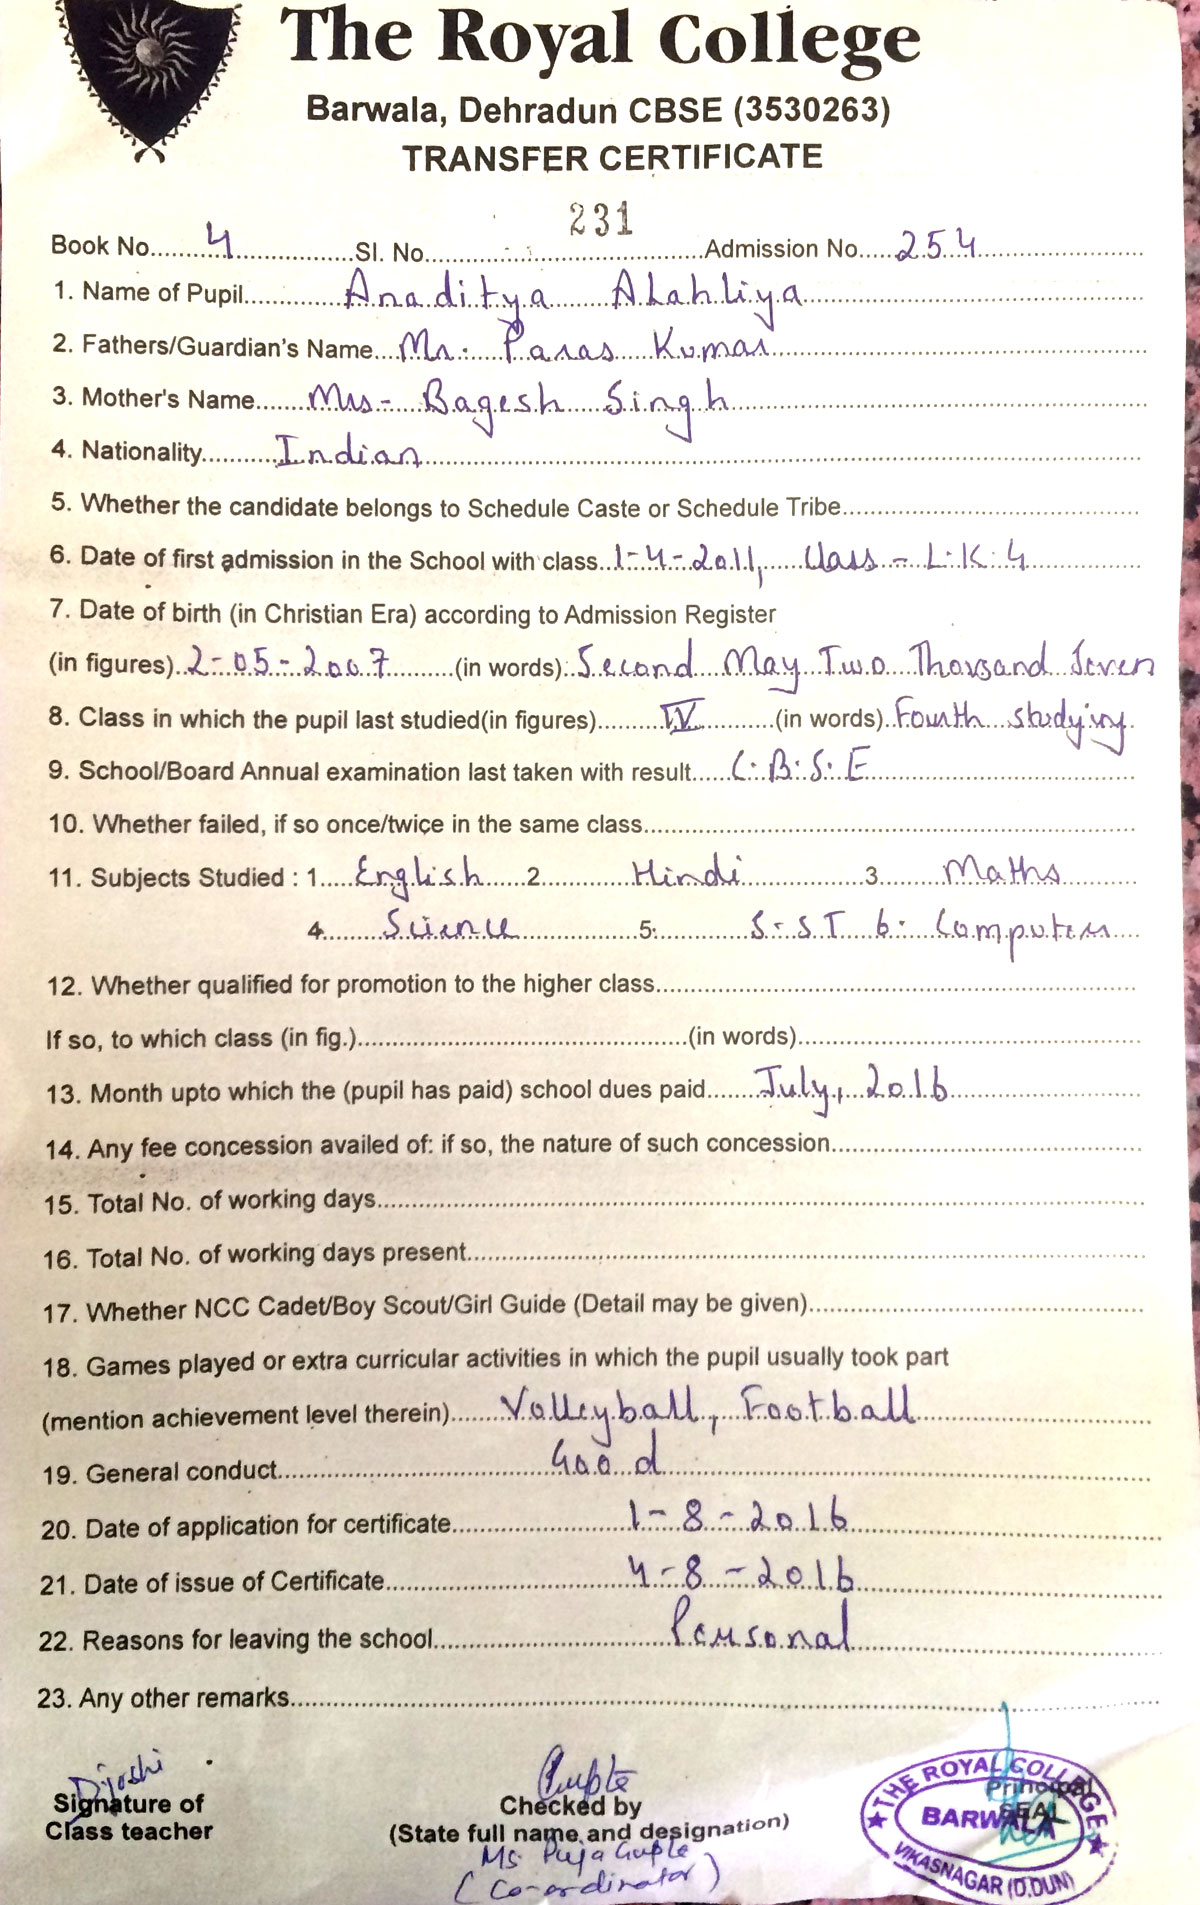 The Royal College
Barwala, Dehradun CBSE (3530263)
TRANSFER CERTIFICATE
231
Book No. 4 Sl. No. Admission No. 254
1. Name of Pupil Anaditya Alahliya
2. Fathers/Guardian's Name Mr. Paras Kumar
3. Mother's Name Mrs- Bagesh Singh
4. Nationality Indian
5. Whether the candidate belongs to Schedule Caste or Schedule Tribe
6. Date of first admission in the School with class 1-4-2011, Class - L.K.G
7. Date of birth (in Christian Era) according to Admission Register
(in figures) 2-05-2007 (in words) Second May Two Thousand Seven
8. Class in which the pupil last studied(in figures) IV (in words) Fourth studying
9. School/Board Annual examination last taken with result C.B.S.E
10. Whether failed, if so once/twice in the same class
11. Subjects Studied : 1. English 2. Hindi 3. Maths
4. Science 5. S.ST 6. Computers
12. Whether qualified for promotion to the higher class
If so, to which class (in fig.) (in words)
13. Month upto which the (pupil has paid) school dues paid July, 2016
14. Any fee concession availed of: if so, the nature of such concession
15. Total No. of working days
16. Total No. of working days present
17. Whether NCC Cadet/Boy Scout/Girl Guide (Detail may be given)
18. Games played or extra curricular activities in which the pupil usually took part
(mention achievement level therein) Volleyball, Football
19. General conduct Good
20. Date of application for certificate 1-8-2016
21. Date of issue of Certificate 4-8-2016
22. Reasons for leaving the school Personal
23. Any other remarks
Djoshi
Signature of
Class teacher
Pgupta
Checked by
(State full name and designation)
Ms Puja Gupta
(Co-ordinator)
Principal
SEAL
THE ROYAL COLLEGE
BARWALA
VIKASNAGAR (D.DUN)